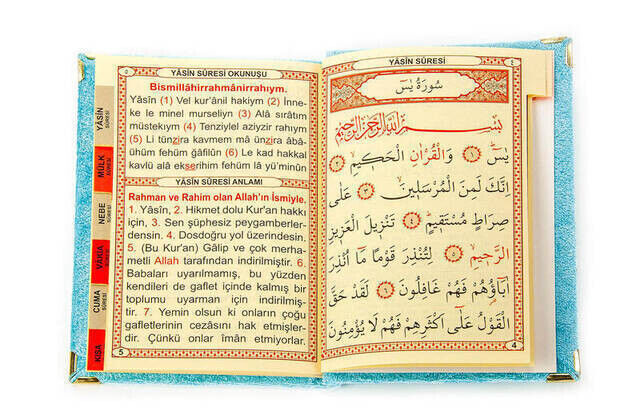 YÂSÎN SÛRESİ OKUNUŞU
٥
Bismillâhirrahmânirrahıym.
Yâsîn (1) Vel kur'ânil hakiym (2) İnne-
ke le minel murseliyn (3) Alâ sırâtım
müstekıym (4) Tenziylel aziyzir rahıym
(5) Li tünzira kavmem mâ ünzira âbâ-
ühum fehüm ğâfilûn (6) Le kad hakkal
kavlü alâ ekserihim fehüm lâ yü'minûn
YÂSÎN SÛRESİ ANLAMI
Rahman ve Rahim olan Allah'ın İsmiyle.
1. Yâsîn, 2. Hikmet dolu Kur'an hakkı
için, 3. Sen şüphesiz peygamberler-
densin. 4. Dosdoğru yol üzerindesin.
5. (Bu Kur'an) Gâlip ve çok merha-
metli Allah tarafından indirilmiştir. 6.
Babaları uyarılmamış, bu yüzden
kendileri de gaflet içinde kalmış bir
toplumu uyarman için indirilmiş-
tir. 7. Yemin olsun ki onların çoğu
gafletlerinin cezâsını hak etmişler-
dir. Çünkü onlar îman etmiyorlar.
5
YÂSİN
SÛRESİ
MÜLK
SÛRESİ
NEBE
SÛRESİ
VAKIA
SÛRESİ
CUMA
SÛRESİ
KISA
YÂSÎN SÛRESİ
٤
سُورَةُ يٰسٓ
بِسْمِ اللّٰهِ الرَّحْمٰنِ الرَّحِيمِ
يٰسٓ ١ وَالْقُرْاٰنِ الْحَكِيمِ ٢
اِنَّكَ لَمِنَ الْمُرْسَلِينَ ٣ عَلٰى
صِرَاطٍ مُسْتَقِيمٍ ٤ تَنْزِيلَ الْعَزِيزِ
الرَّحِيمِ ٥ لِتُنْذِرَ قَوْمًا مَٓا اُنْذِرَ
اٰبَٓاؤُهُمْ فَهُمْ غَافِلُونَ ٦ لَقَدْ حَقَّ
الْقَوْلُ عَلٰٓى اَكْثَرِهِمْ فَهُمْ لَا يُؤْمِنُونَ
4